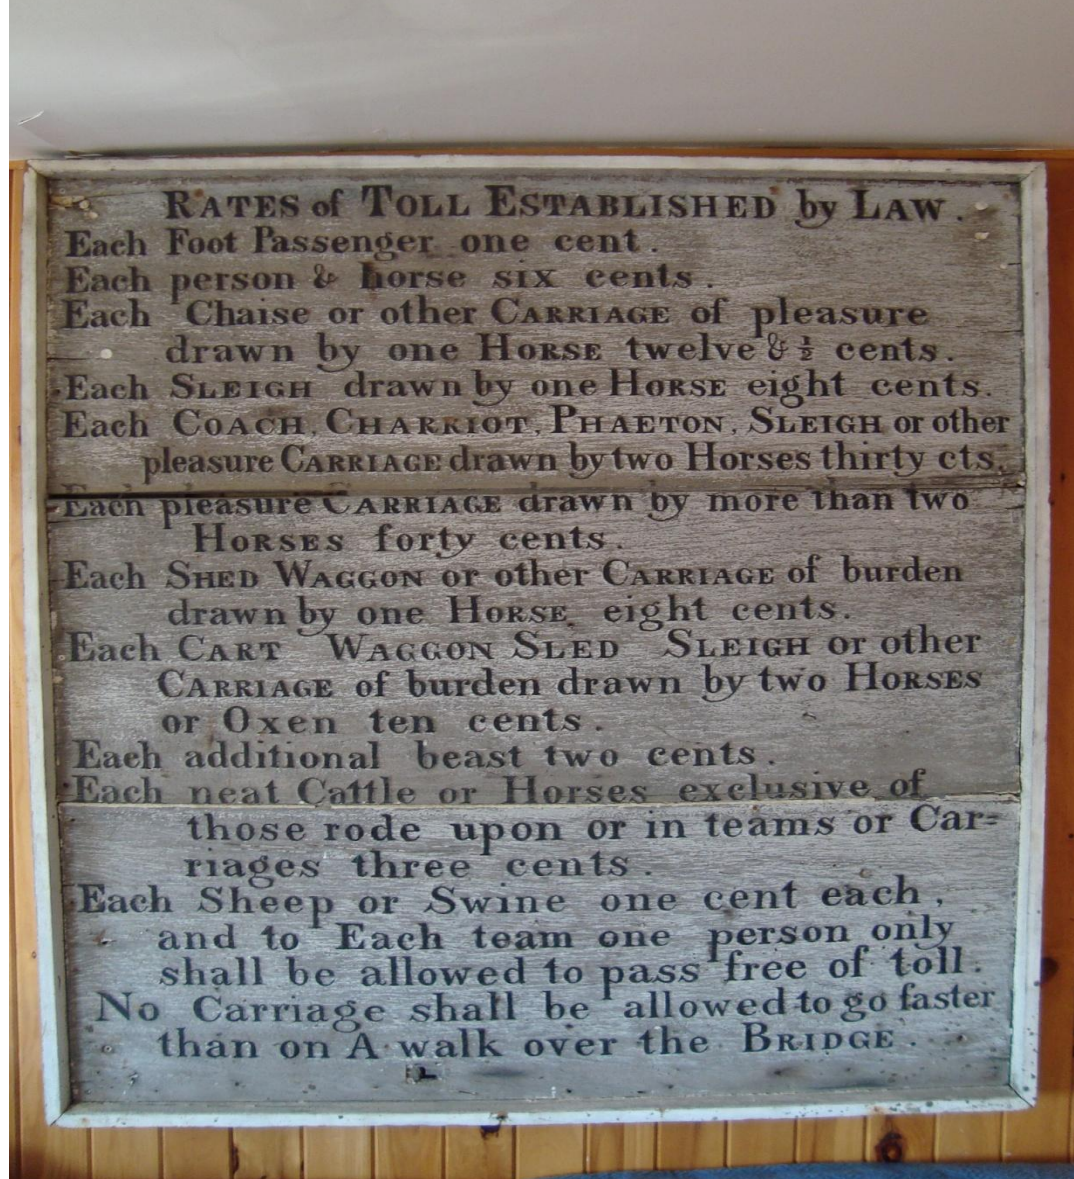 RATES of TOLL ESTABLISHED by LAW.
Each Foot Passenger one cent.
Each person & horse six cents.
Each Chaise or other CARRIAGE of pleasure
drawn by one HORSE twelve & ½ cents.
Each SLEIGH drawn by one HORSE eight cents.
Each COACH, CHARRIOT, PHAETON, SLEIGH or other
pleasure CARRIAGE drawn by two Horses thirty cts.
Each pleasure CARRIAGE drawn by more than two
HORSES forty cents.
Each SHED WAGGON or other CARRIAGE of burden
drawn by one HORSE eight cents.
Each CART WAGGON SLED SLEIGH or other
CARRIAGE of burden drawn by two HORSES
or Oxen ten cents.
Each additional beast two cents.
Each neat Cattle or Horses exclusive of
those rode upon or in teams or Car=
riages three cents.
Each Sheep or Swine one cent each,
and to Each team one person only
shall be allowed to pass free of toll.
No Carriage shall be allowed to go faster
than on A walk over the BRIDGE.